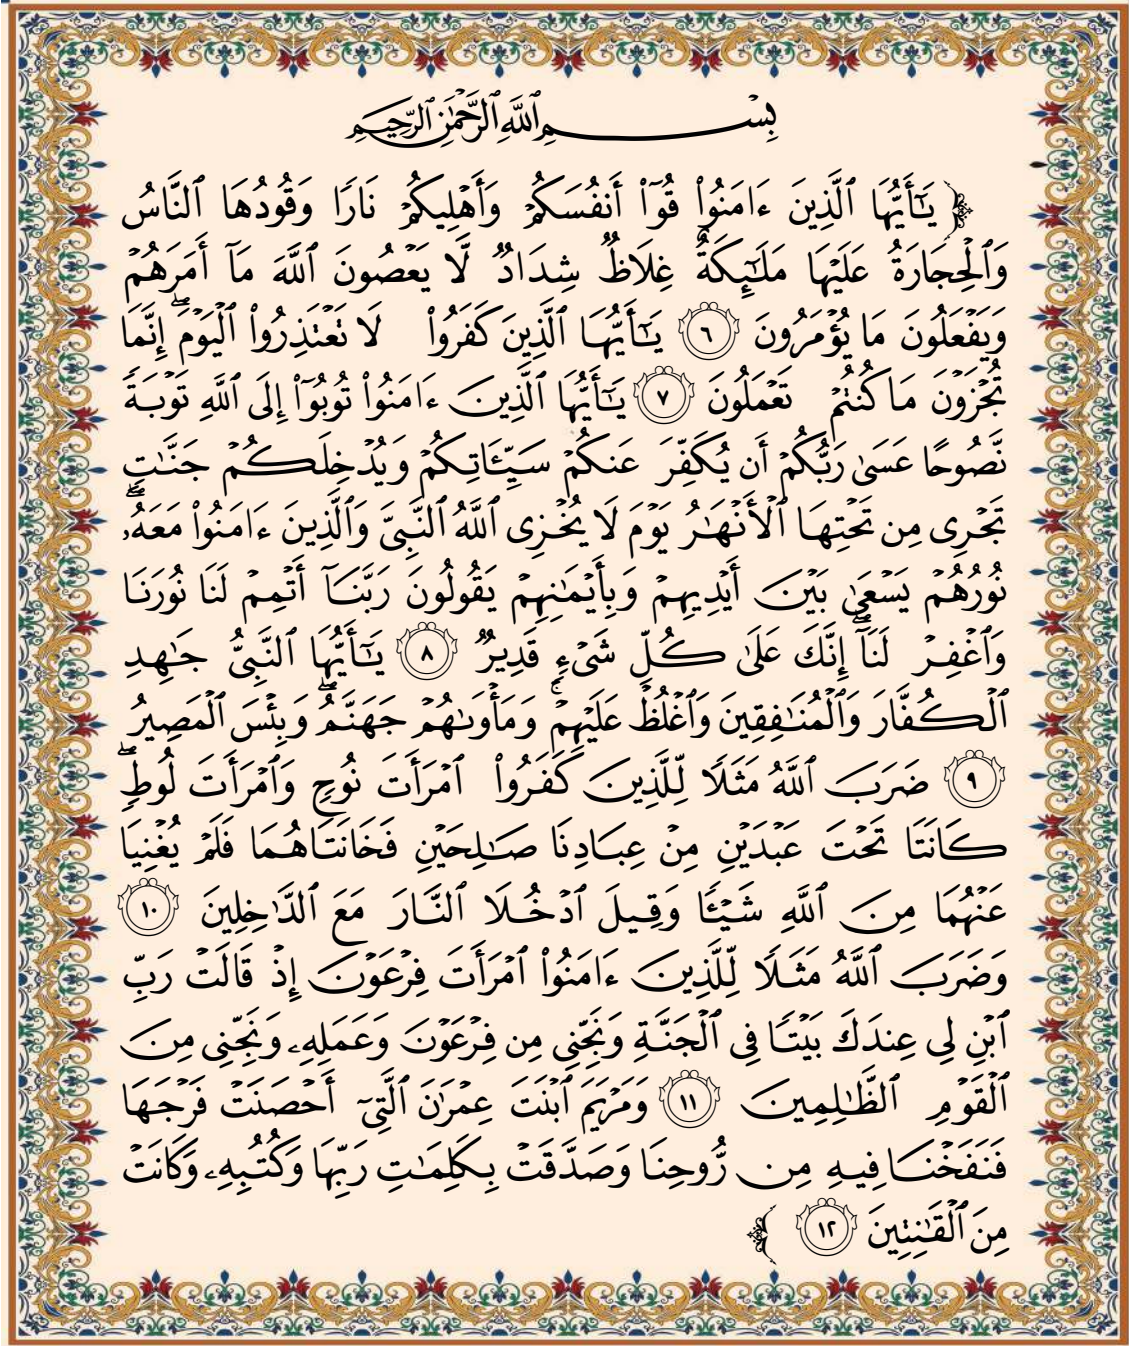 بِسْمِ ٱللَّهِ ٱلرَّحْمَٰنِ ٱلرَّحِيمِ
﴿ يَٰٓأَيُّهَا ٱلَّذِينَ ءَامَنُوا۟ قُوٓا۟ أَنفُسَكُمْ وَأَهْلِيكُمْ نَارًا وَقُودُهَا ٱلنَّاسُ
وَٱلْحِجَارَةُ عَلَيْهَا مَلَٰٓئِكَةٌ غِلَاظٌ شِدَادٌ لَّا يَعْصُونَ ٱللَّهَ مَآ أَمَرَهُمْ
وَيَفْعَلُونَ مَا يُؤْمَرُونَ ٦ يَٰٓأَيُّهَا ٱلَّذِينَ كَفَرُوا۟ لَا تَعْتَذِرُوا۟ ٱلْيَوْمَ ۖ إِنَّمَا
تُجْزَوْنَ مَا كُنتُمْ تَعْمَلُونَ ٧ يَٰٓأَيُّهَا ٱلَّذِينَ ءَامَنُوا۟ تُوبُوٓا۟ إِلَى ٱللَّهِ تَوْبَةً
نَّصُوحًا عَسَىٰ رَبُّكُمْ أَن يُكَفِّرَ عَنكُمْ سَيِّـَٔاتِكُمْ وَيُدْخِلَكُمْ جَنَّٰتٍ
تَجْرِى مِن تَحْتِهَا ٱلْأَنْهَٰرُ يَوْمَ لَا يُخْزِى ٱللَّهُ ٱلنَّبِىَّ وَٱلَّذِينَ ءَامَنُوا۟ مَعَهُۥ ۖ
نُورُهُمْ يَسْعَىٰ بَيْنَ أَيْدِيهِمْ وَبِأَيْمَٰنِهِمْ يَقُولُونَ رَبَّنَآ أَتْمِمْ لَنَا نُورَنَا
وَٱغْفِرْ لَنَآ ۖ إِنَّكَ عَلَىٰ كُلِّ شَىْءٍ قَدِيرٌ ٨ يَٰٓأَيُّهَا ٱلنَّبِىُّ جَٰهِدِ
ٱلْكُفَّارَ وَٱلْمُنَٰفِقِينَ وَٱغْلُظْ عَلَيْهِمْ ۚ وَمَأْوَىٰهُمْ جَهَنَّمُ ۖ وَبِئْسَ ٱلْمَصِيرُ
٩ ضَرَبَ ٱللَّهُ مَثَلًا لِّلَّذِينَ كَفَرُوا۟ ٱمْرَأَتَ نُوحٍ وَٱمْرَأَتَ لُوطٍ ۖ
كَانَتَا تَحْتَ عَبْدَيْنِ مِنْ عِبَادِنَا صَٰلِحَيْنِ فَخَانَتَاهُمَا فَلَمْ يُغْنِيَا
عَنْهُمَا مِنَ ٱللَّهِ شَيْـًٔا وَقِيلَ ٱدْخُلَا ٱلنَّارَ مَعَ ٱلدَّٰخِلِينَ ١٠
وَضَرَبَ ٱللَّهُ مَثَلًا لِّلَّذِينَ ءَامَنُوا۟ ٱمْرَأَتَ فِرْعَوْنَ إِذْ قَالَتْ رَبِّ
ٱبْنِ لِى عِندَكَ بَيْتًا فِى ٱلْجَنَّةِ وَنَجِّنِى مِن فِرْعَوْنَ وَعَمَلِهِۦ وَنَجِّنِى مِنَ
ٱلْقَوْمِ ٱلظَّٰلِمِينَ ١١ وَمَرْيَمَ ٱبْنَتَ عِمْرَٰنَ ٱلَّتِىٓ أَحْصَنَتْ فَرْجَهَا
فَنَفَخْنَا فِيهِ مِن رُّوحِنَا وَصَدَّقَتْ بِكَلِمَٰتِ رَبِّهَا وَكُتُبِهِۦ وَكَانَتْ
مِنَ ٱلْقَٰنِتِينَ ١٢ ﴾